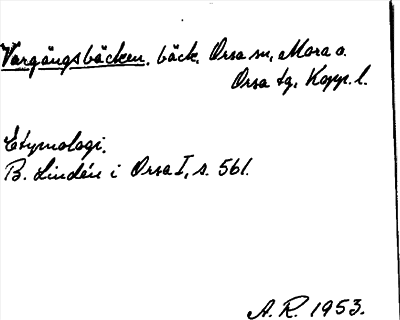 Vargängsbäcken. bäck. Orsa sn, Mora o.
Orsa tg, Kopp. l.
Etymologi.
B. Lindén i Orsa I, s. 561.
A. R. 1953.